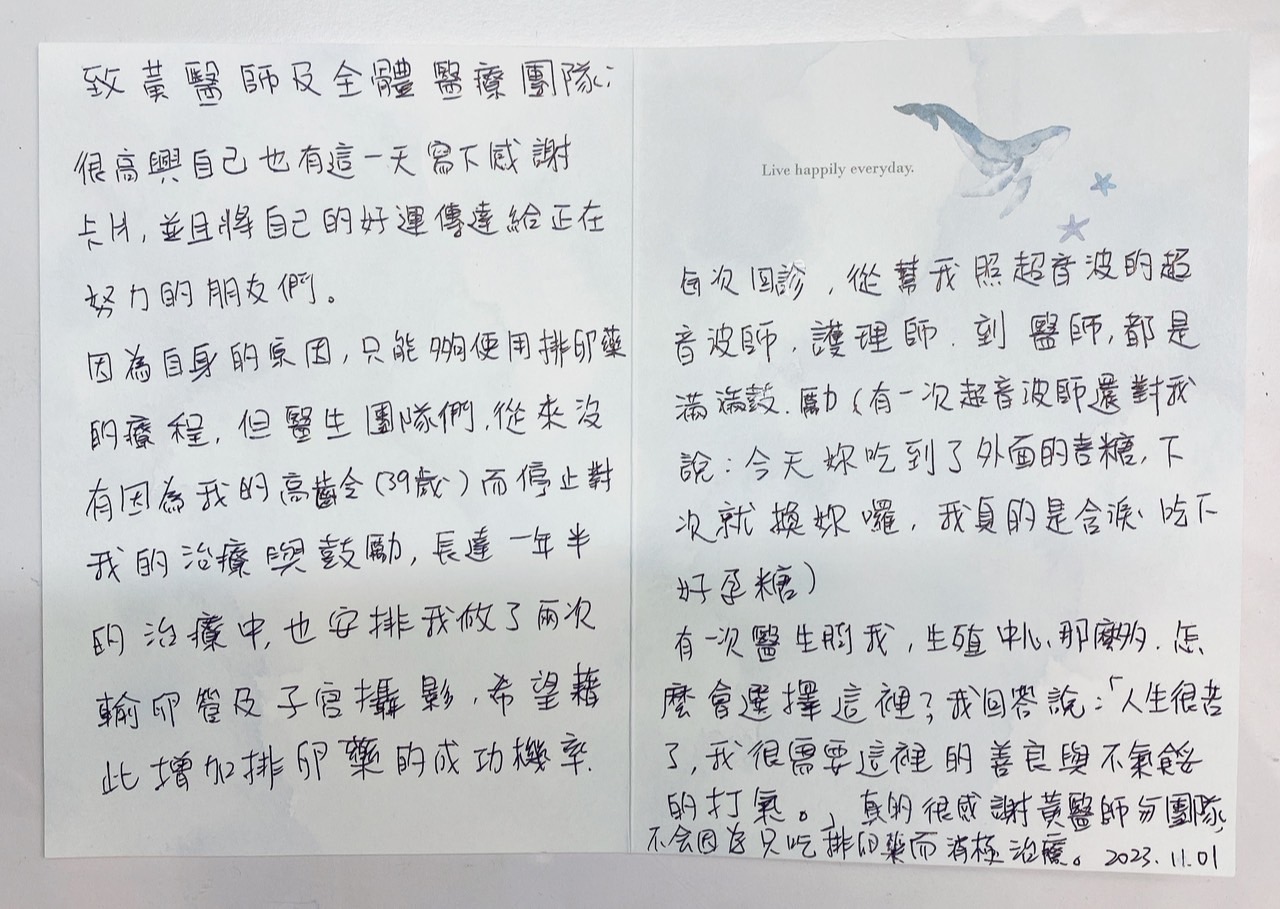 致黃醫師及全體醫療團隊:
很高興自己也有這一天寫下感謝
卡片,並且將自己的好運傳達給正在
努力的朋友們。
因為自身的原因,只能夠使用排卵藥
的療程,但醫生團隊們,從來沒
有因為我的高齡(39歲)而停止對
我的治療與鼓勵,長達一年半
的治療中,也安排我做了兩次
輸卵管及子宮攝影,希望藉
此增加排卵藥的成功機率.
Live happily everyday.
每次回診,從幫我照超音波的超
音波師,護理師.到醫師,都是
滿滿鼓勵(有一次超音波師還對我
說:今天妳吃到了外面的喜糖,下
次就換妳囉,我真的是含淚吃下
好孕糖)
有一次醫生問我,生殖中心那麼多.怎
麼會選擇這裡?我回答說:「人生很苦
了,我很需要這裡的善良與不氣餒
的打氣。」真的很感謝黃醫師的團隊,
不会因為只吃排卵藥而消極治療。2023.11.01